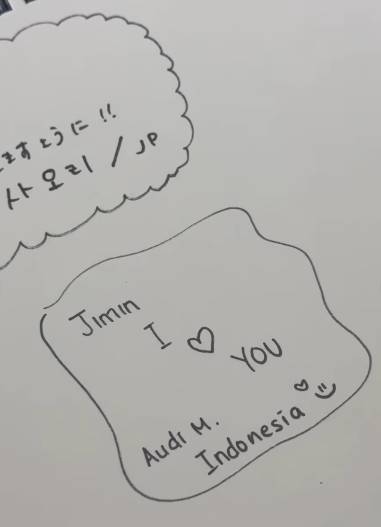 ますように!!
사오리 / JP
Jimin
I ♡ YOU
Audi M.
Indonesia ♡